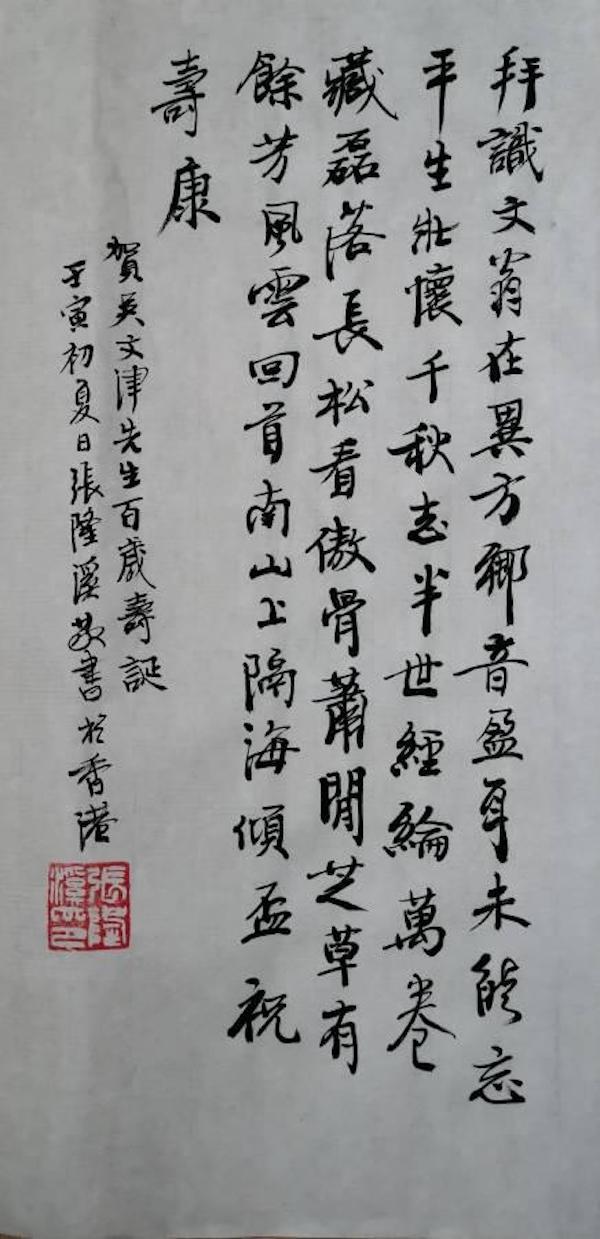 拜識文翁在異方鄉音盈耳未能忘
平生壯懷千秋志半世經綸萬卷
藏磊落長松看傲骨蕭閒芝草有
餘芳風雲回首南山上隔海傾盃祝
壽康
賀吳文津先生百歲壽誕
壬寅初夏日張隆溪敬書於香港
張隆溪印